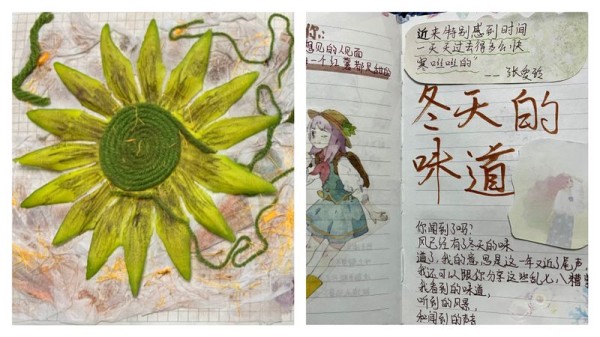 你：
想见的人见面
一个红薯都
近来特别感到时间
一天天过去得多么快
寒咝咝的”
——张爱玲
冬天的
味道
你闻到了吗？
风已经有了冬天的味
道了，我的意思是这一年又近了尾声
我还可以跟你分享这些乱七八糟
我看到的味道，
听到的风景，
和闻到的声音